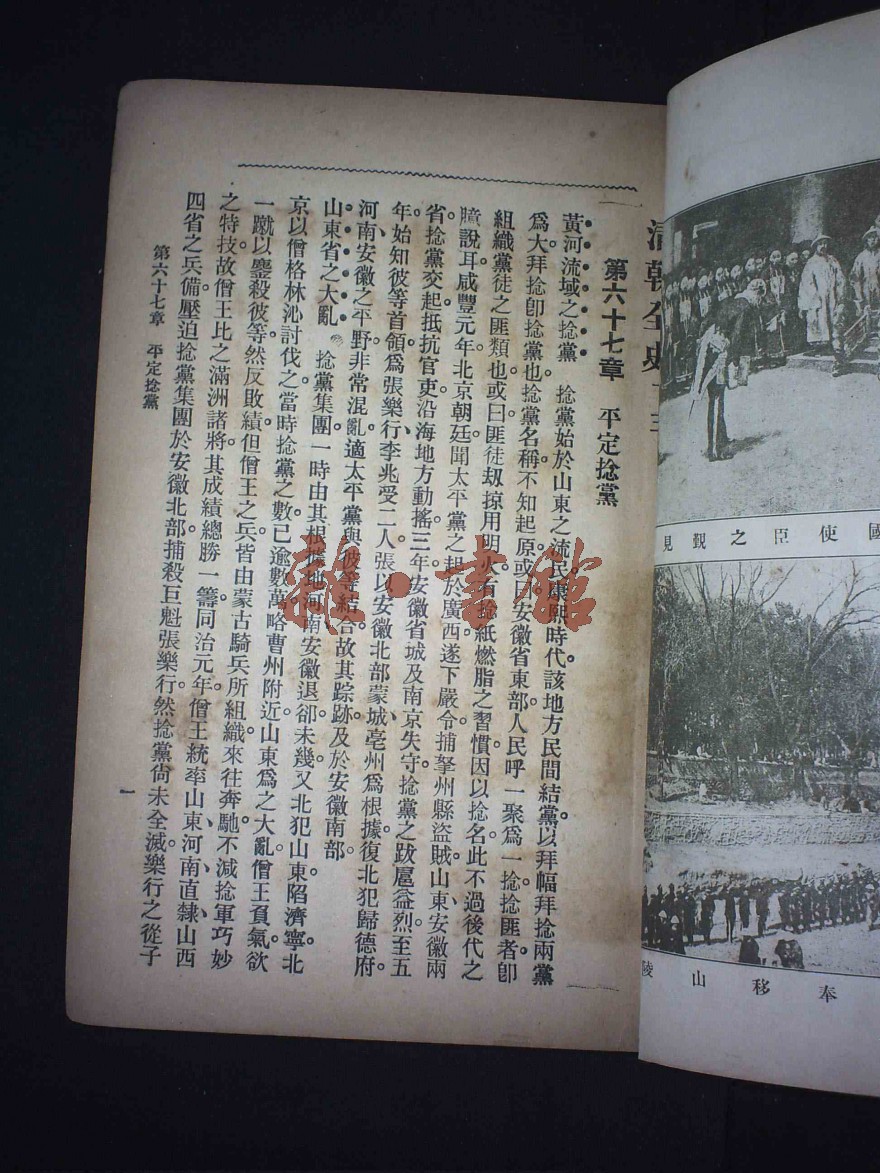 清朝全史
第六十七章　平定捻黨
黃河流域之捻黨　捻黨始於山東之流民。康熙時代該地方民間結黨。以拜幅拜捻兩黨
爲大。拜捻卽捻黨也。捻黨名稱不知起原。或曰安徽省東部人民呼一聚爲一捻。捻匪者卽
組織黨徒之匪類也。或曰匪徒刼掠用明火。有捻紙燃脂之習慣。因以捻名。此不過後代之
臆說耳。咸豐元年。北京朝廷聞太平黨之起於廣西。遂下嚴令捕拏州縣盜賊。山東、安徽兩
省捻黨交起抵抗官吏。沿海地方動搖。三年。安徽省城及南京失守。捻黨之跋扈益烈。至五
年。始知彼等首領爲張樂行李兆受二人。張以安徽北部蒙城、亳州爲根據。復北犯歸德府。
河南、安徽之平野。非常混亂。適太平黨與彼等結合。故其踪跡及於安徽南部
山東省之大亂　捻黨集團一時由其根據地河南、安徽退卻。未幾又北犯山東。陷濟寧。北
京以僧格林沁討伐之。當時捻黨之數。已逾數萬。略曹州附近。山東爲之大亂。僧王負氣欲
一蹴以鏖殺彼等。然反敗績。但僧王之兵。皆由蒙古騎兵所組織。來往奔馳。不減捻軍巧妙
之特技。故僧王比之滿洲諸將。其成績總勝一籌。同治元年。僧王統率山東、河南、直隸、山西
四省之兵。備壓迫捻黨集團於安徽北部。捕殺巨魁張樂行。然捻黨尙未全滅。樂行之從子
第六十七章　平定捻黨
一
國使臣之覲見
奉移山陵
雜·書館